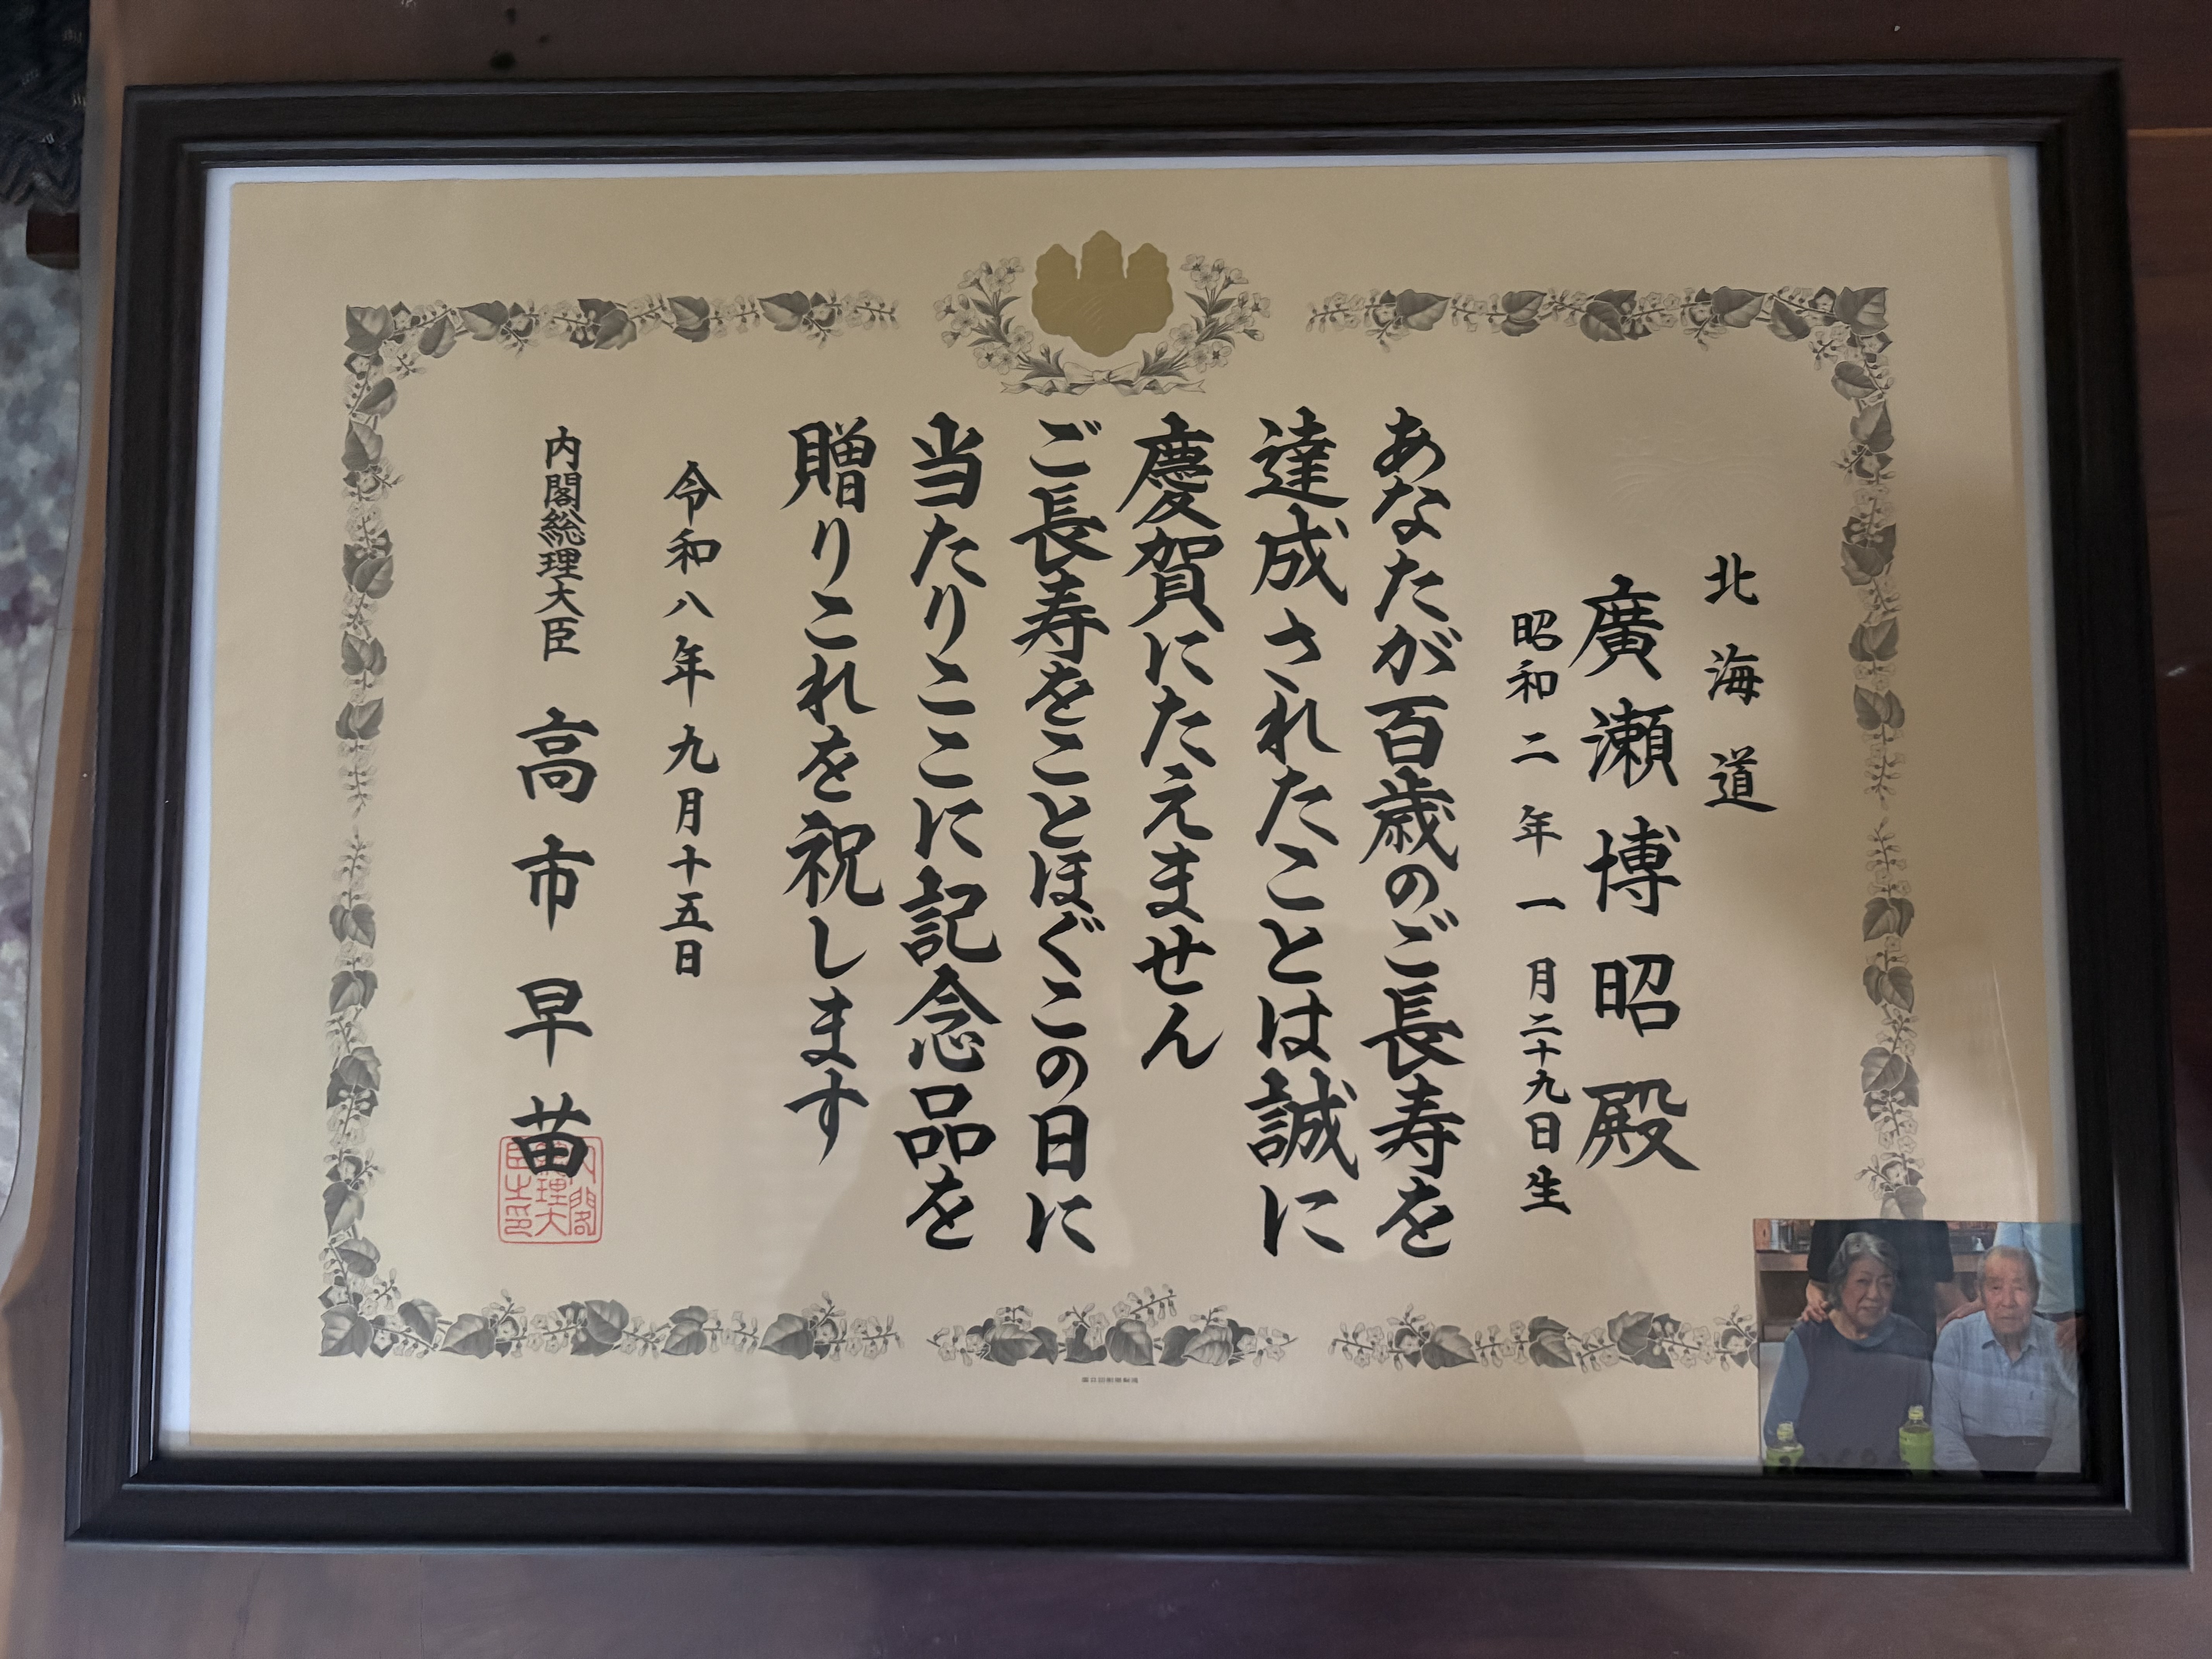 北海道
廣瀬博昭殿
昭和二年一月二十九日生
あなたが百歳のご長寿を
達成されたことは誠に
慶賀にたえません
ご長寿をことほぐこの日に
当たりここに記念品を
贈りこれを祝します
令和八年九月十五日
内閣総理大臣 高市早苗